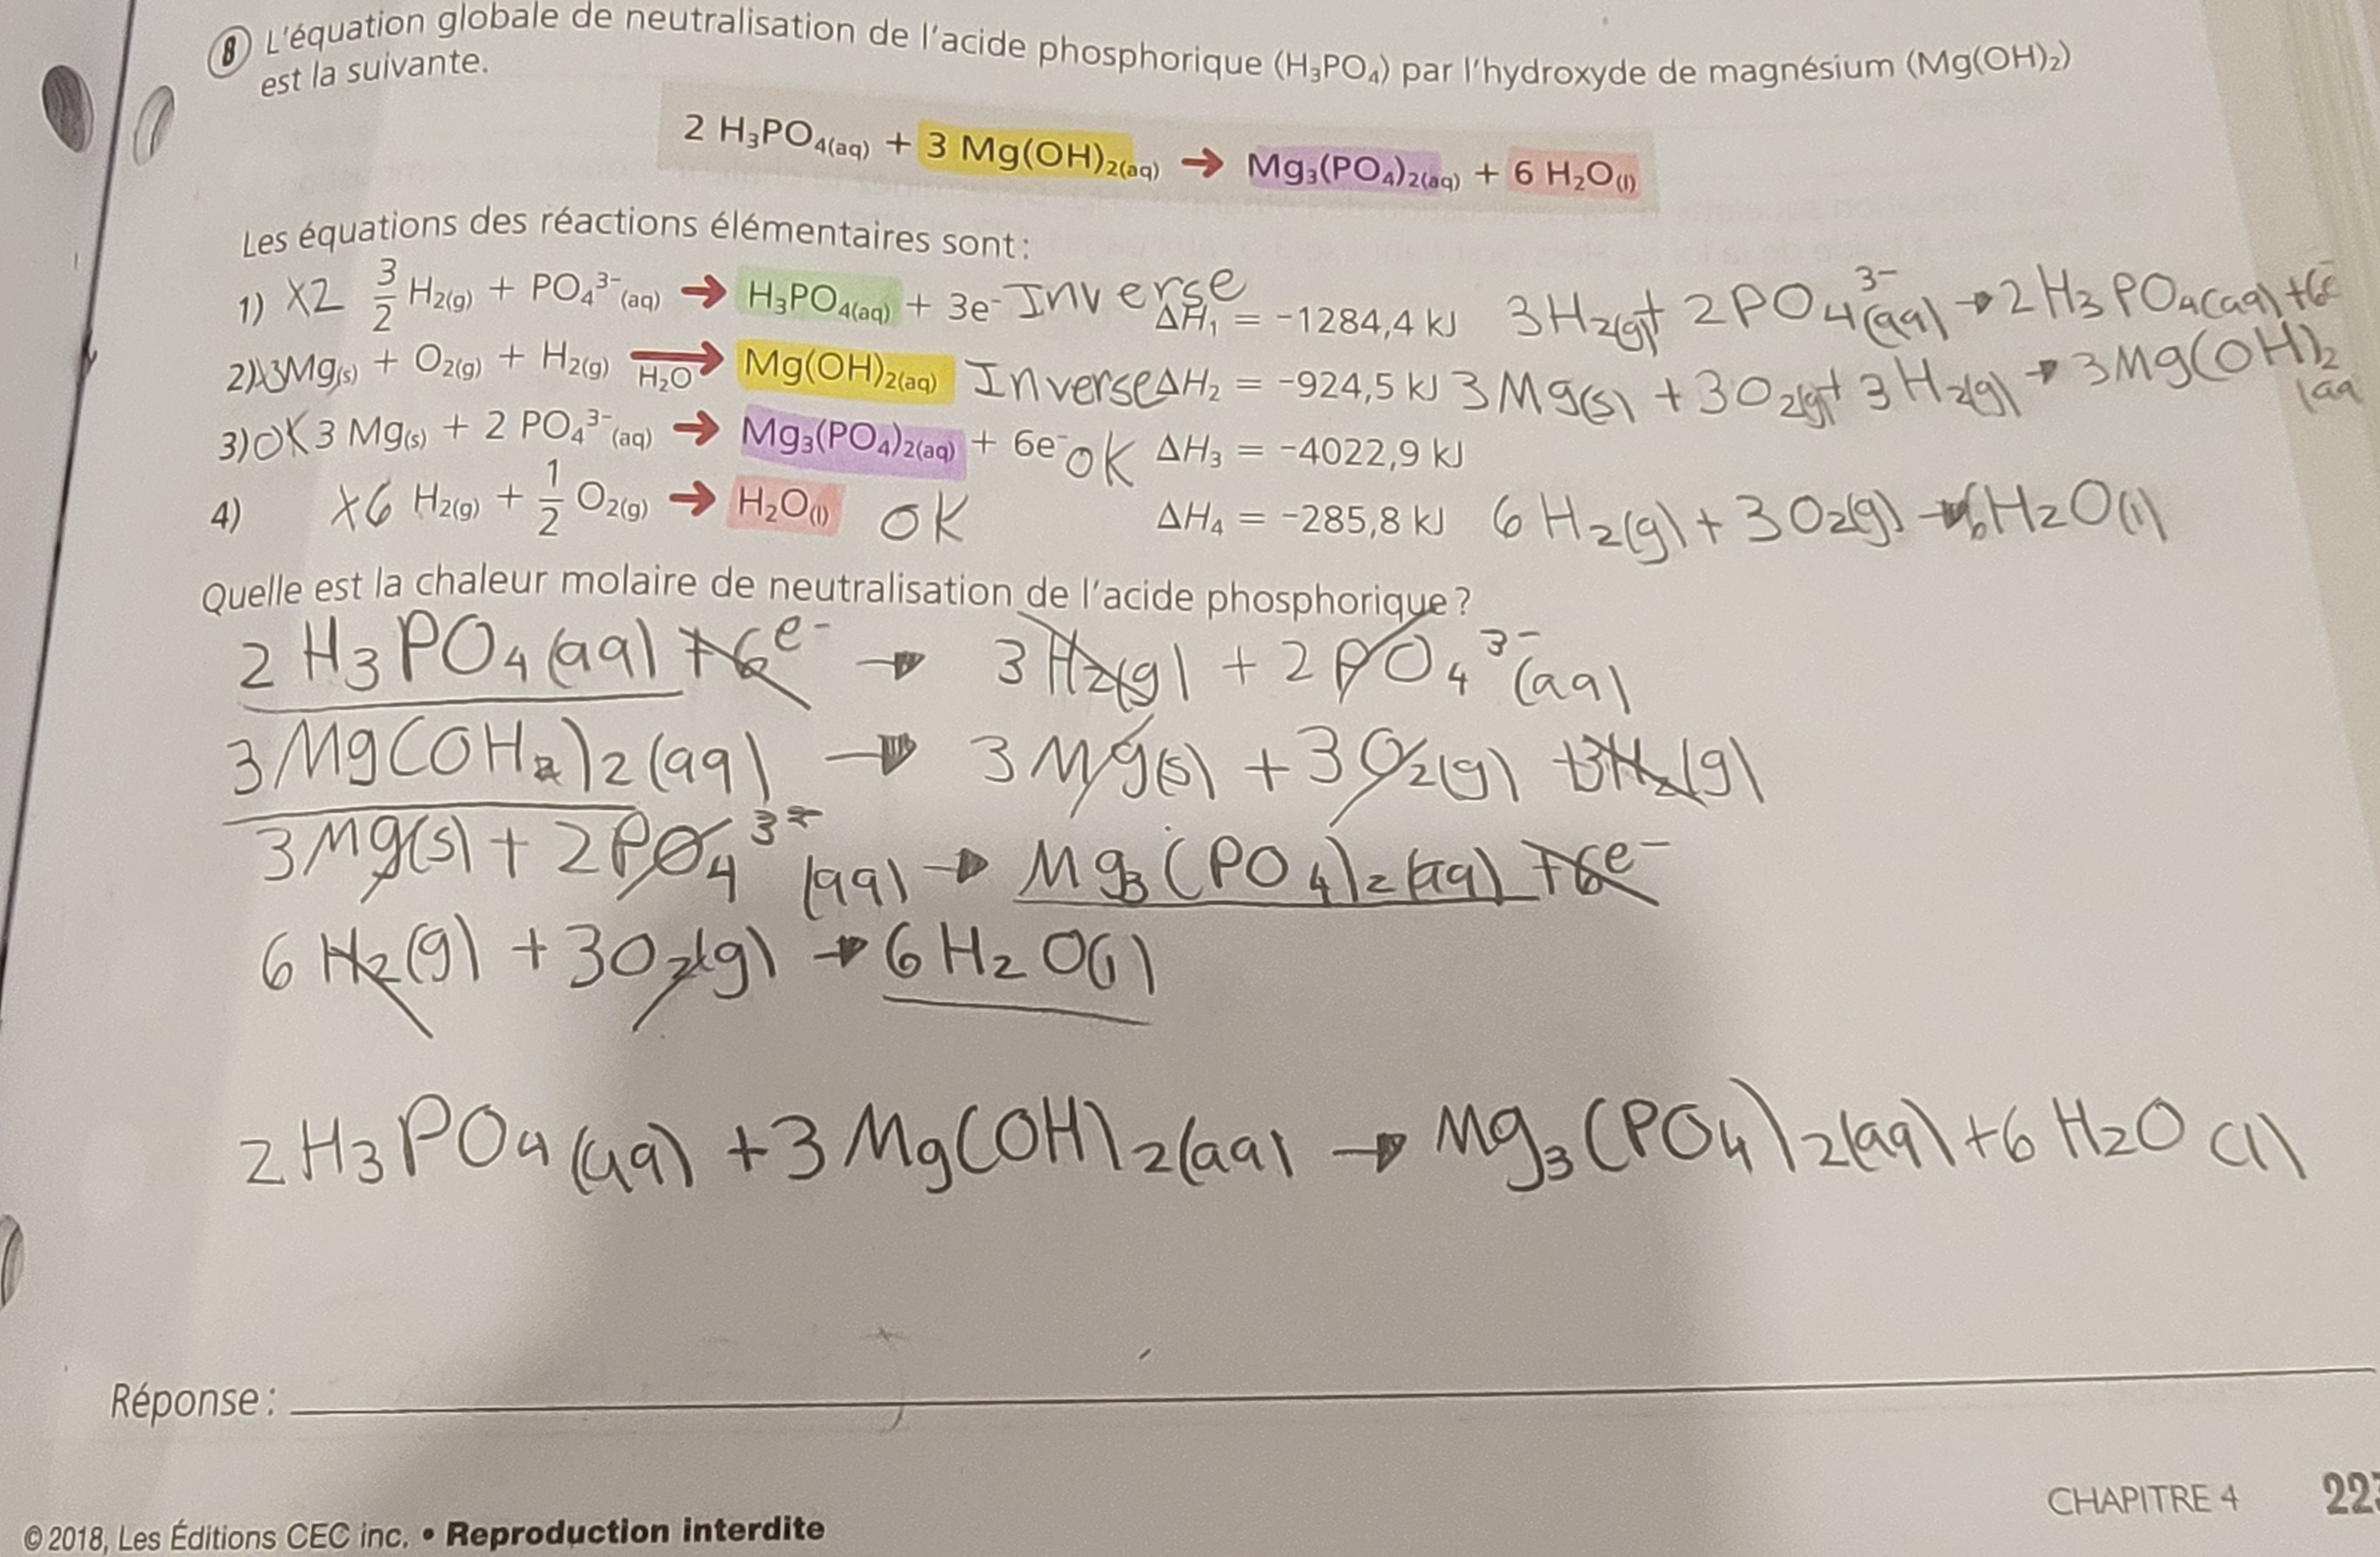 8 L'équation globale de neutralisation de l'acide phosphorique (H₃PO₄) par l'hydroxyde de magnésium (Mg(OH)₂)
est la suivante.
2 H₃PO₄(aq) + 3 Mg(OH)₂(aq) → Mg₃(PO₄)₂(aq) + 6 H₂O(l)
Les équations des réactions élémentaires sont :
1) X2 3/2 H₂(g) + PO₄³⁻(aq) → H₃PO₄(aq) + 3e⁻ Inverse ΔH₁ = -1284,4 kJ 3H₂(g) + 2PO₄³⁻(aq) → 2H₃PO₄(aq) + 6e⁻
2) X3 Mg(s) + O₂(g) + H₂(g) →H₂O Mg(OH)₂(aq) Inverse ΔH₂ = -924,5 kJ 3Mg(s) + 3O₂(g) + 3H₂(g) → 3Mg(OH)₂(aq
3) OK 3 Mg(s) + 2 PO₄³⁻(aq) → Mg₃(PO₄)₂(aq) + 6e⁻ OK ΔH₃ = -4022,9 kJ
4) X6 H₂(g) + 1/2 O₂(g) → H₂O(l) OK ΔH₄ = -285,8 kJ 6H₂(g) + 3O₂(g) → 6H₂O(l)
Quelle est la chaleur molaire de neutralisation de l'acide phosphorique ?
2 H₃PO₄(aq) + 6e⁻ → 3H₂(g) + 2PO₄³⁻(aq)
3Mg(OH)₂(aq) → 3Mg(s) + 3O₂(g) + 3H₂(g)
3Mg(s) + 2PO₄³⁻(aq) → Mg₃(PO₄)₂(aq) + 6e⁻
6H₂(g) + 3O₂(g) → 6H₂O(l)
2H₃PO₄(aq) + 3Mg(OH)₂(aq) → Mg₃(PO₄)₂(aq) + 6H₂O(l)
Réponse :
CHAPITRE 4
© 2018, Les Éditions CEC inc. • Reproduction interdite